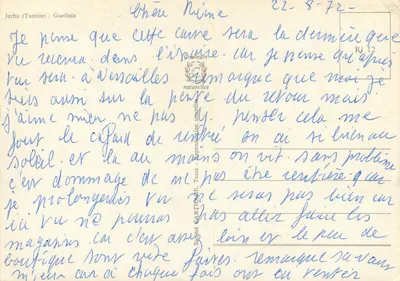 Jerba (Tunisie) : Guellala
22-8-72
Chère Reine
Je pense que cette carte sera la dernière que
tu recevra dans l'          car je pense qu'après
tu sera à Versailles remarque que moi je
suis aussi sur la pente du retour mais
j'aime mieu ne pas y penser cela me
fout le cafard de rentré on ai si bien au
soleil. et la au moins on vit. sans problème
c'est dommage de ne pas être rentière car
je prolongerais tu ne seras pas bien car
ici tu ne pourras pas aller faire les
magasins car c'est assez loin et le peu de
boutique sont vite faites. remarque sa vaus
mieux car à chaque fois ont ai tenter
naturelles
RJ 12